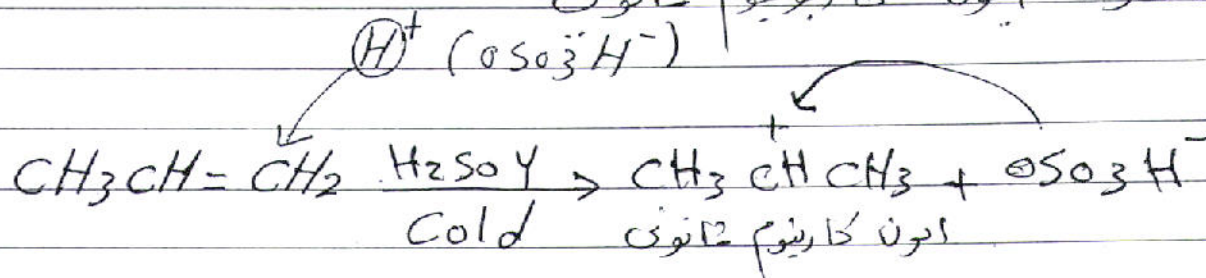 H⁺ (OSO₃H⁻)
CH₃CH=CH₂ H₂SO4 → CH₃ CH⁺ CH₃ + OSO₃H⁻
Cold ايون كاربنيوم ثانوى